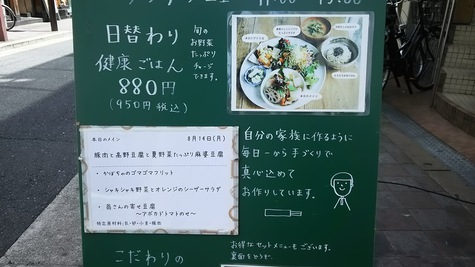 日替わり
健康ごはん
880円
(950円税込)
旬の
お野菜
たっぷり
チャージ
できます。
本日のメイン 8月14日(月)
豚肉と高野豆腐と夏野菜たっぷり麻婆豆腐
・かぼちゃのゴマゴマフリット
・シャキシャキ野菜とオレンジのシーザーサラダ
・呂さんの寄せ豆腐
～アボカドトマトのせ～
特定原材料:乳・卵・小麦・
自分の家族に作るように
毎日一から手づくりで
真心込めて
お作りしています。
こだわりの
お得なセットメニューもございます。
裏面をどうぞ。